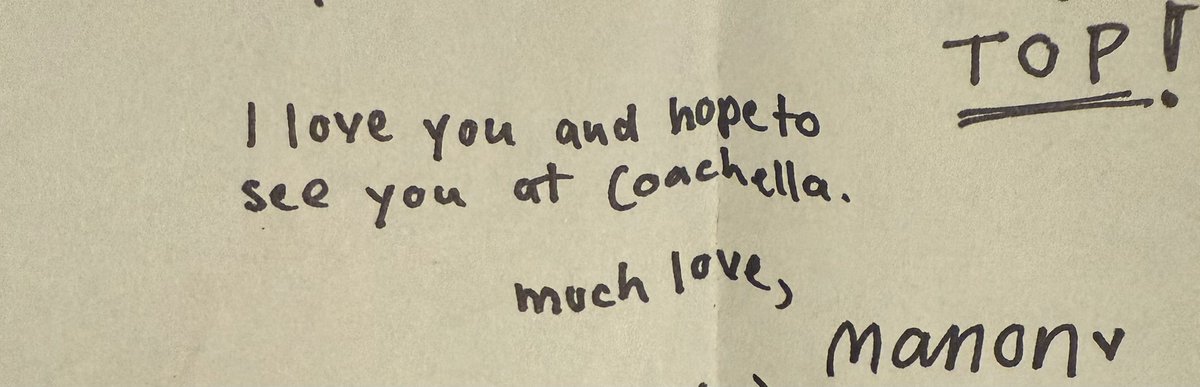 TOP!
I love you and hope to
see you at Coachella.
much love,
Manon